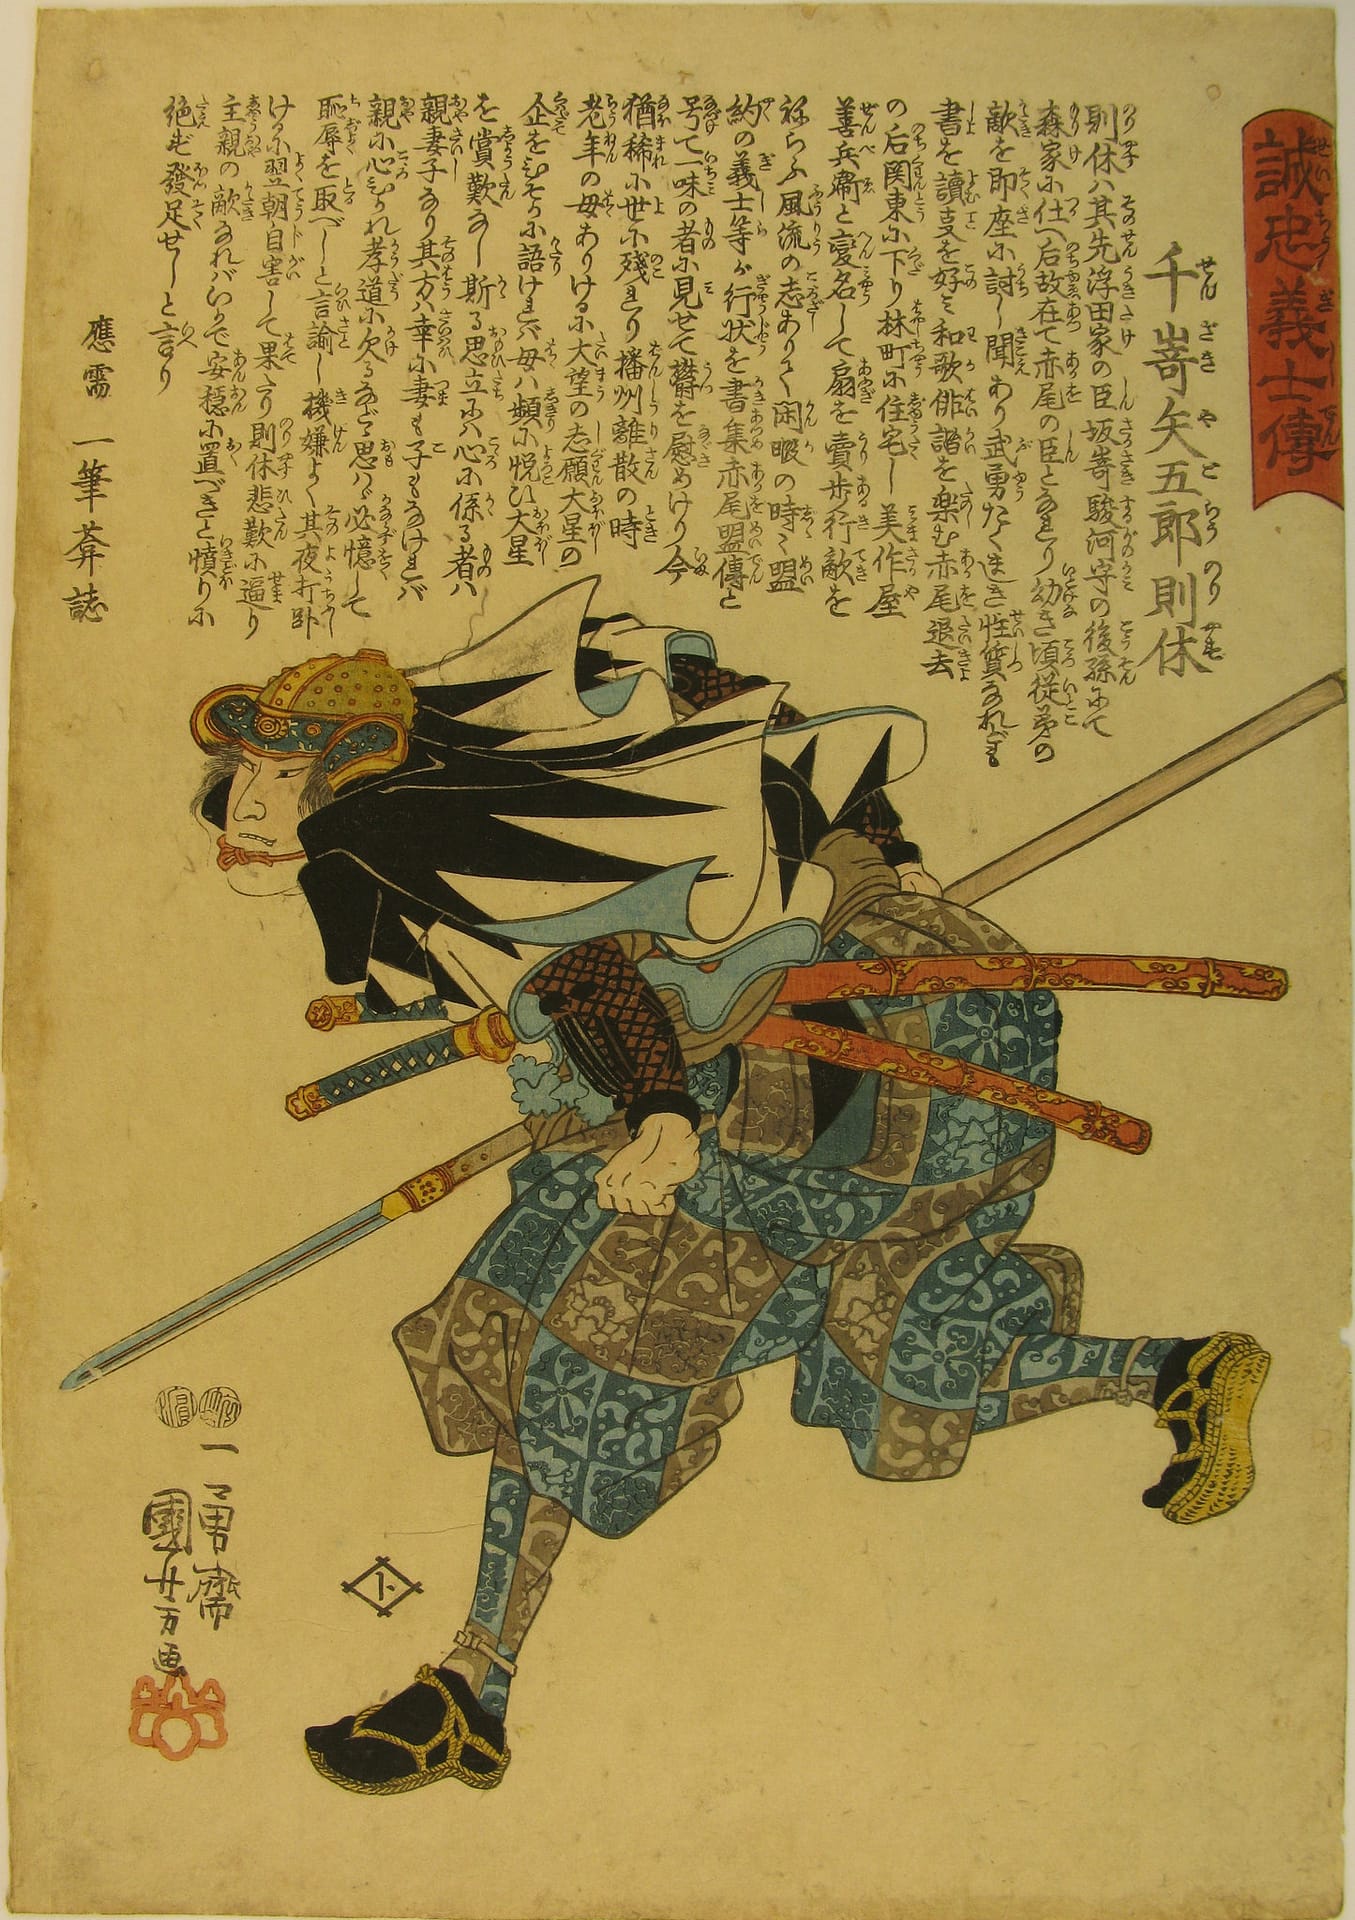 誠忠義士傳
千嵜矢五郎則休
則休ハ其先浮田家の臣坂嵜駿河守の後孫にて
森家に仕へ后故在て赤尾の臣となれり幼き頃従弟の
敵を即座に討し聞あり武勇たくましき性質なれども
書を讀支を好ミ和歌俳諧を楽む赤尾退去
の后関東に下り林町に住宅し美作屋
善兵衞と變名して扇を賣歩行敵を
ねらふ風流の志ありて閑暇の時〻盟
約の義士等が行状を書集赤尾盟傳と
号て一味の者に見せて欝を慰めけり今
猶稀に世に残れり播州離散の時
老年の母ありけるに大望の志願大星の
企をひそかに語けれバ母ハ頻に悦び大星
を賞歎なし斯る思立にハ心に係る者ハ
親妻子なり其方ハ幸に妻も子もなけれバ
親に心ひかれ孝道に欠るなど思ハゞ必憶して
恥辱を取べしと言諭し機嫌よく其夜打臥
けるに翌朝自害して果たり則休悲歎に逼り
主親の敵なれバいかで安穏に置べきと憤りに
絶ず發足せしと言り
應需 一筆葊誌
一勇齋
國芳画